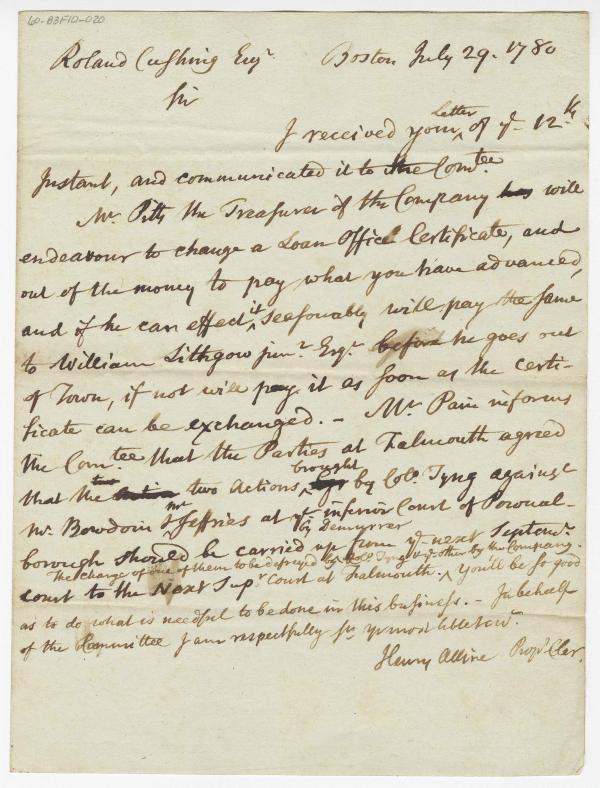 60-83F10-020
Roland Cushing Esqr. Boston July 29. 1780
Sir
I received your Letter of ye 12th
Instant, and communicated it to the Comtee.
Mr. Pitts the Treasurer of the Company has will
endeavour to change a Loan Office Certificate, and
out of the money to pay what you have advanced,
and if he can effect it Seesonably will pay the same
to William Lithgow junr. Esqr. before he goes out
of Town, if not will pay it as soon as the certi-
ficate can be exchanged. - Mr. Pain informs
the Comtee that the Parties at Falmouth agreed
that the two two Actions brought by Colo. Tyng against
Mr. Bowdoin & Mr Jeffries at ye inferior Court of Pownal-
borough should be carried up by Demurrer from ye next Septemr.
The charge of one of them to be defrayed by Colo. Tyng & ye other by the Company.
court to the Next Supr Court at Falmouth. ^ You'll be so good
as to do what is needful to be done in this business. - In behalf
of the Committee I am respectfully Sr yr most hble Servt.
Henry Alline Proprs Cler.